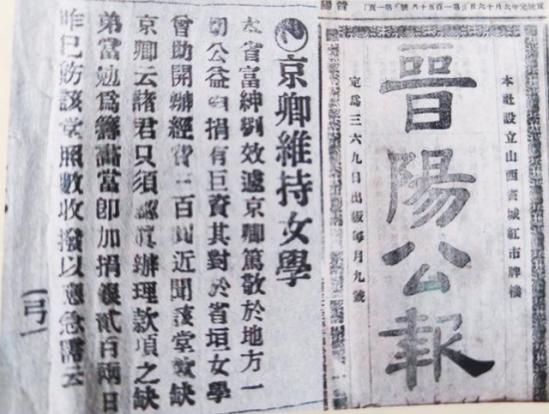 本社設立山西省城紅市牌樓
晉陽公報
定爲三六九日出版每月九號
京卿維持女學
本省富紳劉效遽京卿篤敬於地方一
切公益事捐有巨資其對於省垣女學
曾助開辦經費一百兩近聞該堂款缺
京卿云諸君只須認眞辦理款項之缺
弟當勉爲籌畫當即加捐銀貳百兩日
昨已飭該堂照數收撥以應急需云
(弓)